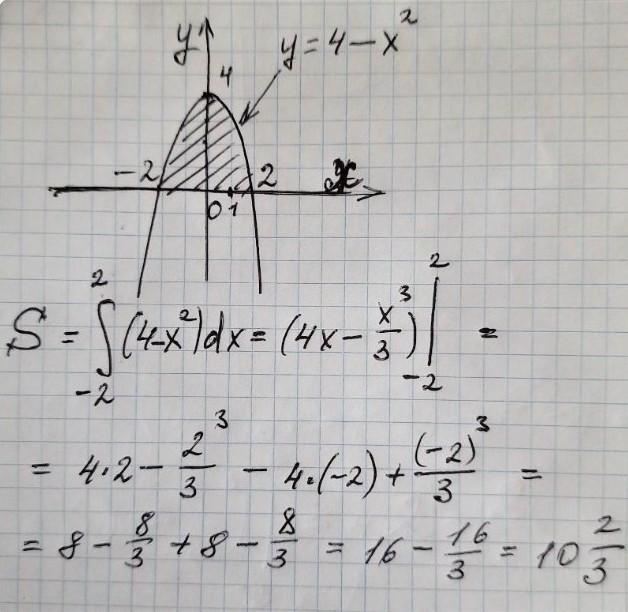 y
4
y = 4 - x²
-2
2
x
0 1
S = ∫₋₂² (4-x²)dx = (4x - x³/3) |₋₂² =
= 4·2 - 2³/3 - 4·(-2) + (-2)³/3 =
= 8 - 8/3 + 8 - 8/3 = 16 - 16/3 = 10 2/3